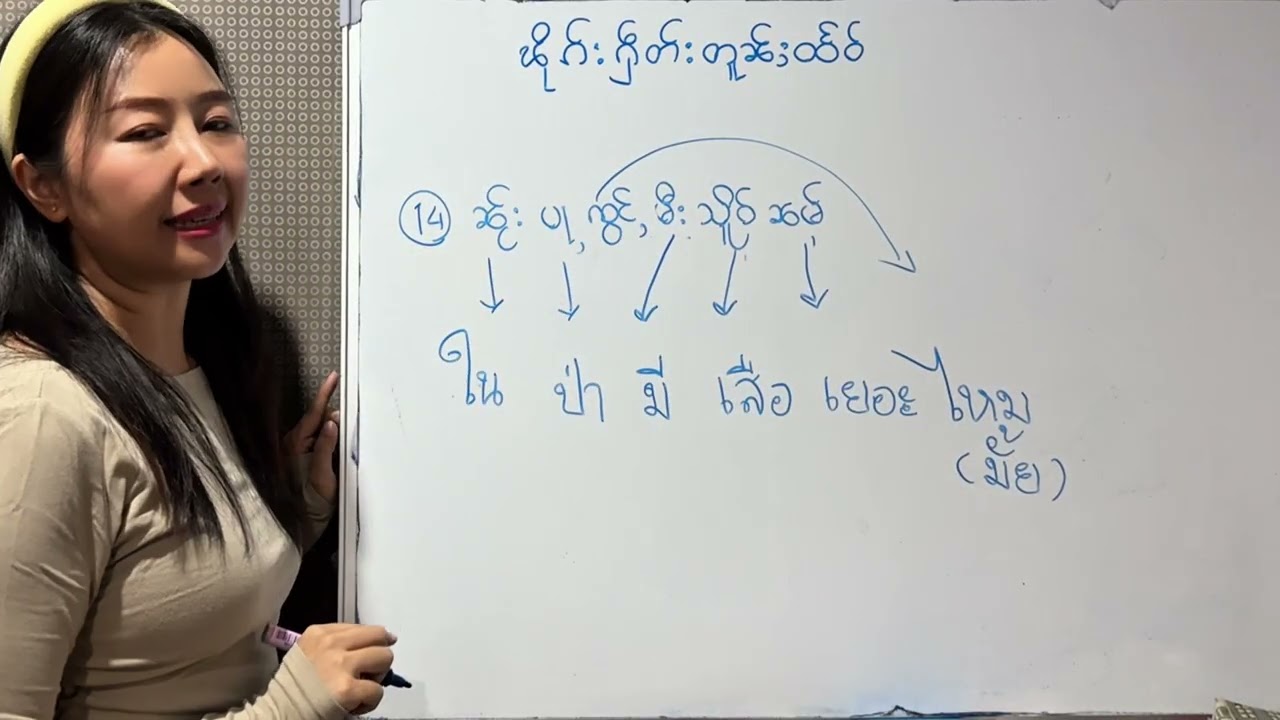 ၽိုၵ်း ႁဵတ်း တူၼ်ႈထႅဝ်
14 ၼႂ်း ပႃႇ ၸွင်ႇ မီး သိူဝ် ၼမ်
ใน ป่า มี เสือ เยอะ ไหม
(มั้ย)